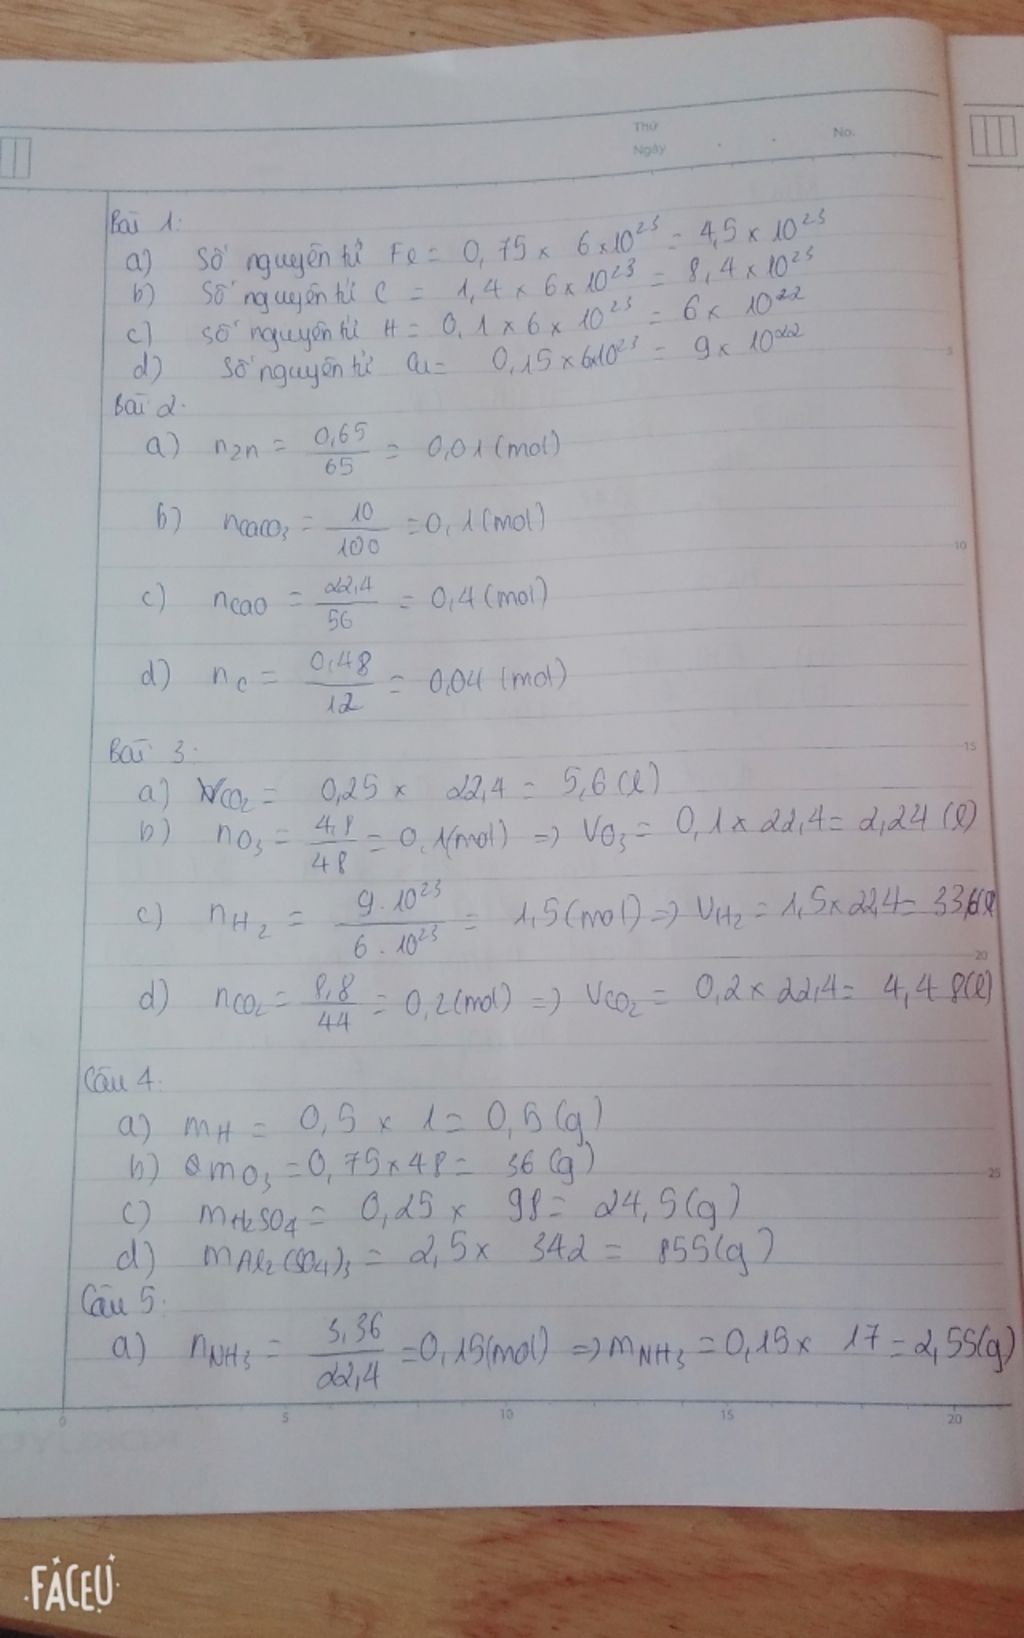 Thứ
Ngày
No.
Bài 1:
a) Số nguyên tử Fe = 0,75 × 6×10²³ = 4,5 × 10²³
b) Số nguyên tử C = 1,4 × 6 × 10²³ = 8,4 × 10²³
c) Số nguyên tử H = 0,1 × 6 × 10²³ = 6 × 10²²
d) Số nguyên tử Cu = 0,15 × 6×10²³ = 9 × 10²²
Bài 2:
a) nZn = 0,65/65 = 0,01 (mol)
b) nCaCO₃ = 10/100 = 0,1 (mol)
c) nCaO = 22,4/56 = 0,4 (mol)
d) nC = 0,48/12 = 0,04 (mol)
Bài 3:
a) VCO₂ = 0,25 × 22,4 = 5,6 (l)
b) nO₃ = 4,8/48 = 0,1 (mol) => VO₃ = 0,1 × 22,4 = 2,24 (l)
c) nH₂ = 9.10²³/6.10²³ = 1,5 (mol) => VH₂ = 1,5 × 22,4 = 33,6 l
d) nCO₂ = 8,8/44 = 0,2 (mol) => VCO₂ = 0,2 × 22,4 = 4,48 (l)
Câu 4:
a) mH = 0,5 × 1 = 0,5 (g)
b) mO₃ = 0,75 × 48 = 36 (g)
c) mH₂SO₄ = 0,25 × 98 = 24,5 (g)
d) mAl₂(SO₄)₃ = 2,5 × 342 = 855 (g)
Câu 5:
a) nNH₃ = 3,36/22,4 = 0,15 (mol) => mNH₃ = 0,15 × 17 = 2,55 (g)
5
10
15
20
25
0 5 10 15 20
FACEU